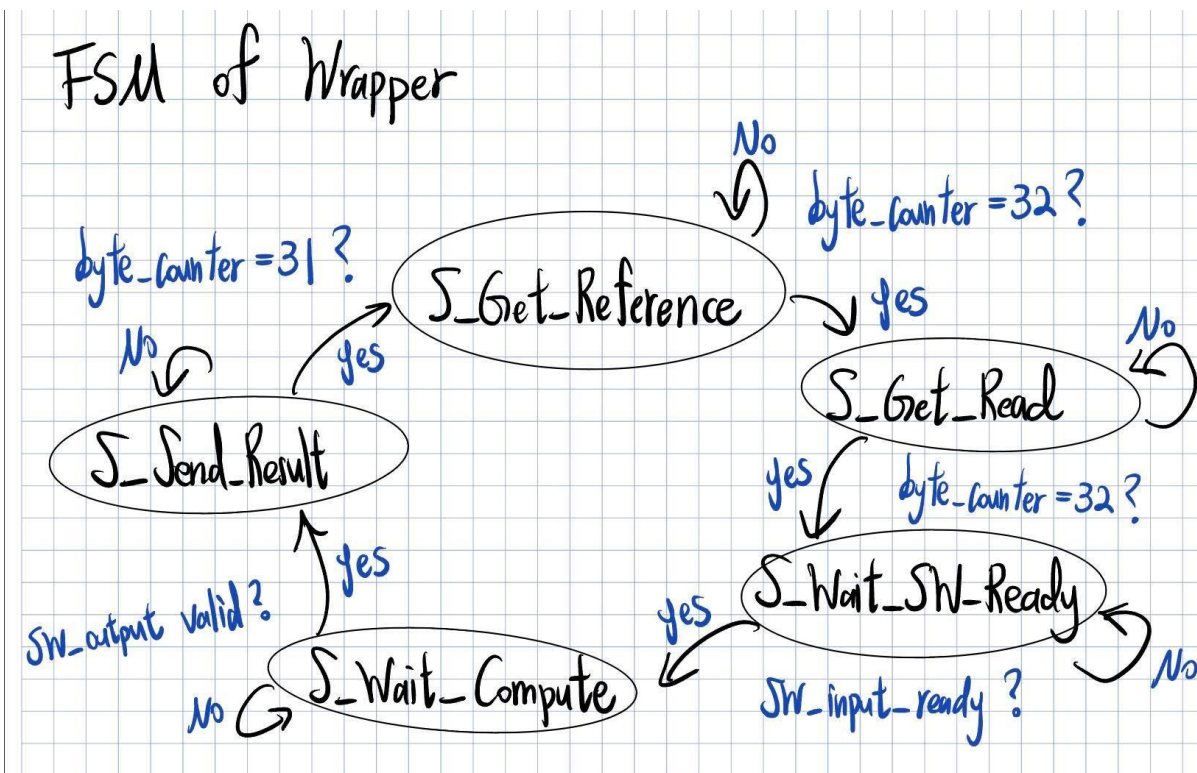 FSM of Wrapper
No
byte_counter = 32 ?
byte_counter = 31 ?
S_Get_Reference
yes
No
yes
No
S_Get_Read
S_Send_Result
yes
byte_counter = 32 ?
yes
S_Wait_SW_Ready
SW_output valid ?
yes
No
S_Wait_Compute
No
SW_input_ready ?